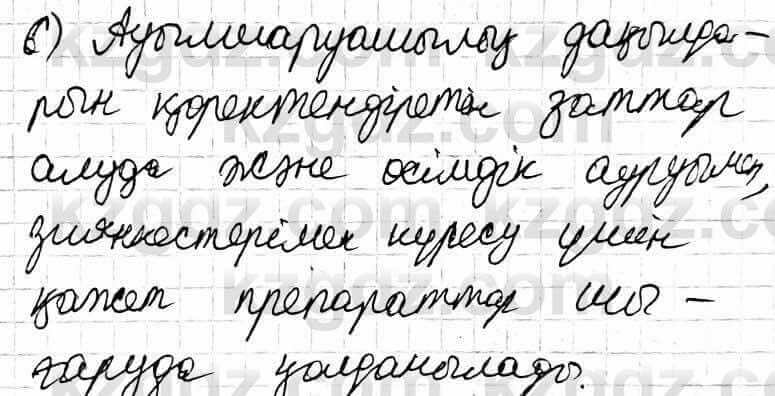 б) Ауылшаруашылық дақылда-
рын қоректендіретін заттар
алуда және өсімдік ауруымен,
зиянкестерімен күресу үшін
қажет препараттар шы-
ғаруда қолданылады.